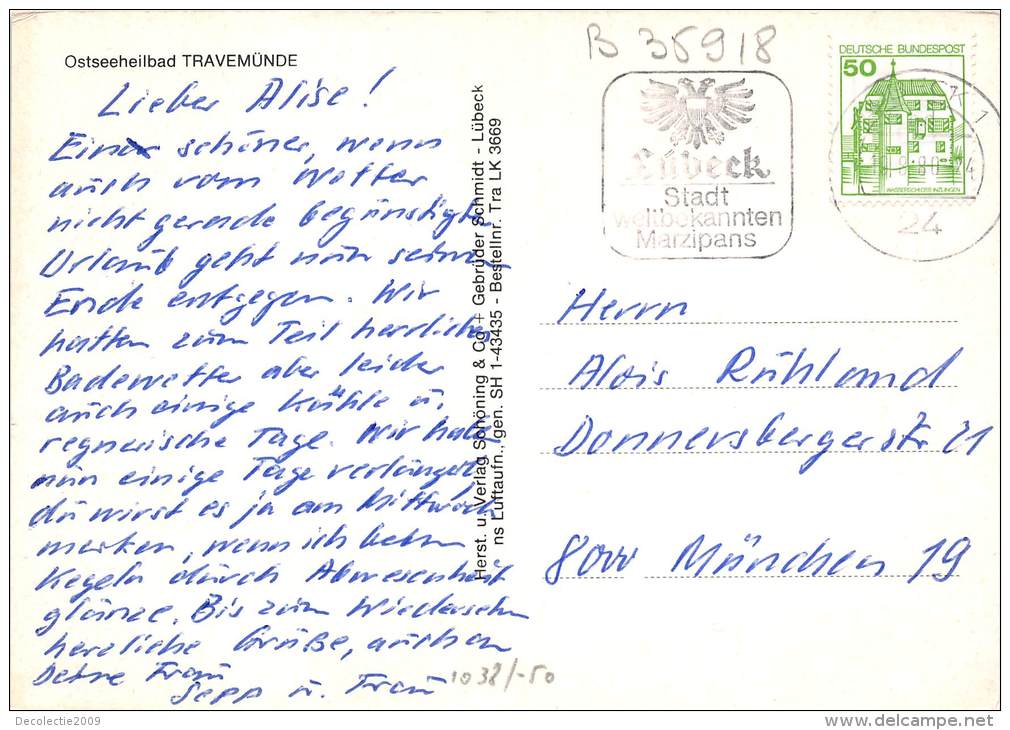 Ostseeheilbad TRAVEMÜNDE
Lieber Alise!
Ein schöner, wenn
auch vom Wetter
nicht gerade begünstigter
Urlaub geht nun seinem
Ende entgegen. Wir
hatten zum Teil herrliches
Badewetter aber leider
auch einige Kühle u.
regnerische Tage. Wir haben
nun einige Tage verlängert,
du wirst es ja am Mittwoch
merken, wenn ich beim
Kegeln durch Abwesenheit
glänze. Bis zum Wiedersehn
herzliche Grüße, auch an
Deine Frau
Sepp u. Frau
Herst. u. Verlag Schöning & Co + Gebrüder Schmidt - Lübeck
ns Luftaufn., gen. SH 1-43435 - Bestellnr. Tra LK 3669
B 35918
Lübeck
Stadt
weltbekannten
Marzipans
DEUTSCHE BUNDESPOST
50
WASSERSCHLOSS INZLINGEN
24
Herrn
Alois Rühland
Donnersbergerstr 21
8000 München 19
1038/-50
Decolectie2009
www.delcampe.net